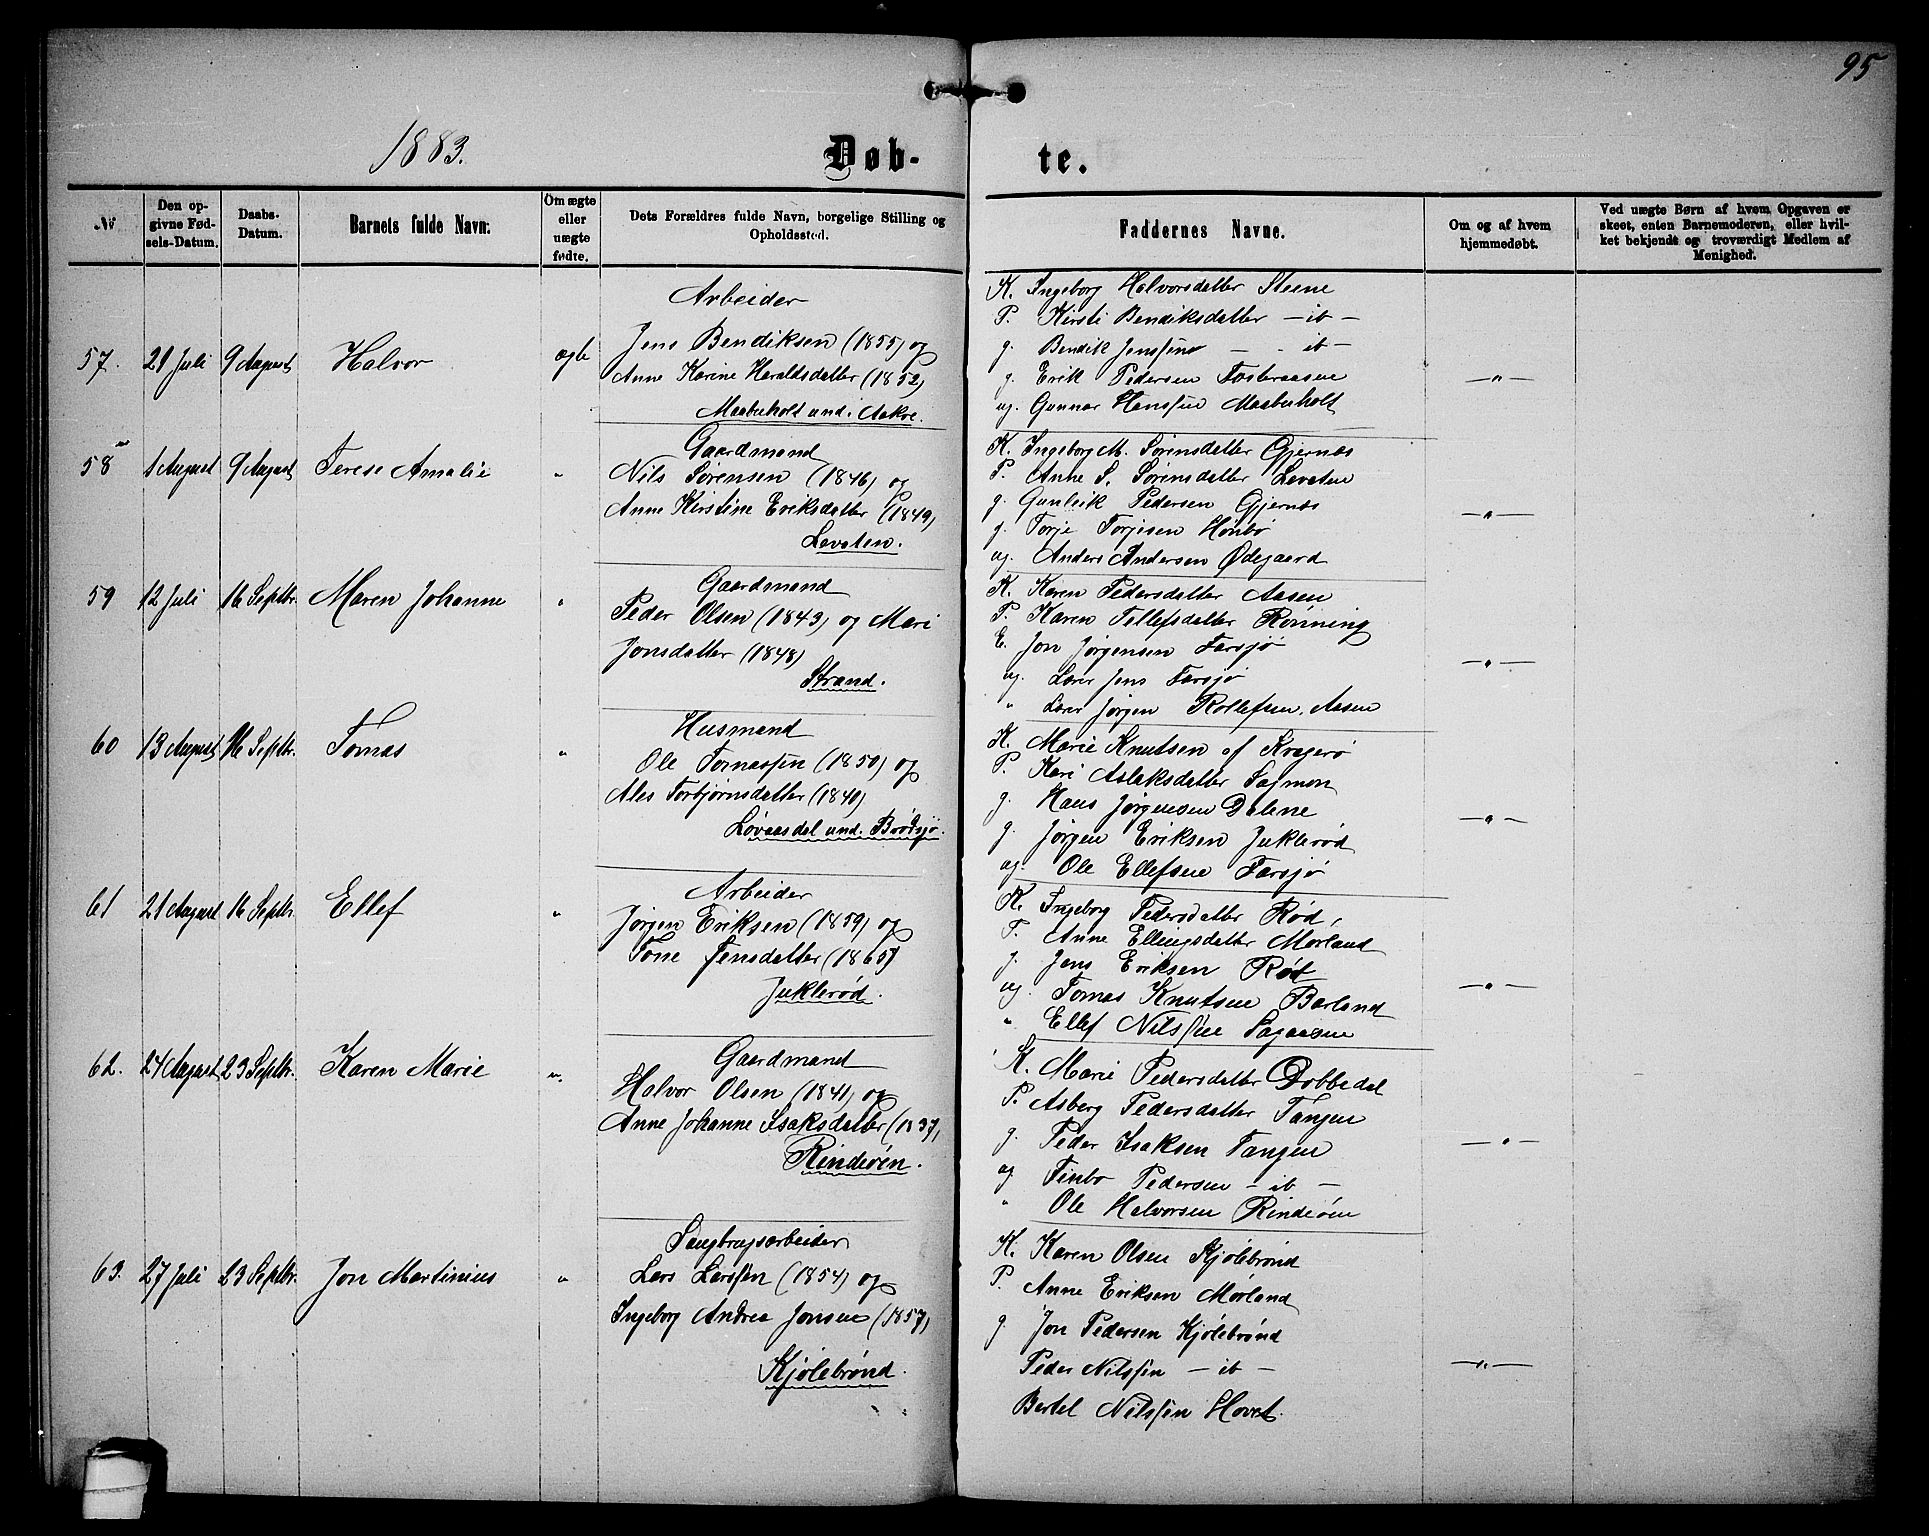 95
1883.
Døb-
te.
№
Den op-
givne Fød-
sels-Datum.
Daabs-
Datum.
Barnets fulde Navn.
Om ægte
eller
uægte
fødte.
Dets Forældres fulde Navn, borgelige Stilling og
Opholdssted.
Faddernes Navne.
Om og af hvem
hjemmedøbt.
Ved uægte Børn af hvem Opgaven er
skeet, enten Barnemoderen, eller hvil-
ket bekjendt og troværdigt Medlem af
Menighed.
57. 21 Juli 9 August Halvor ægte
Arbeider
Jens Bendiksen (1855) og
Anne Karine Haraldsdatter (1852)
Maaberholt und. Aakre.
K. Ingeborg Halvorsdatter Steene
P. Kirsti Bendiksdatter - it -
g. Bendik Jenssen - - it -
g. Erik Pedersen Fosteraasen - " -
ug. Gunnar Hanssen Maaberholt
58 1 August 9 August Terese Amalie "
Gaardmand
Nils Sørensen (1846) og
Anne Kirstine Eriksdatter (1849)
Levaten.
K. Ingeborg M. Sørensdatter Gjernæs
P. Anne S. Sørensdatter Levaten
g. Gunleik Pedersen Gjernæs
g. Torje Torjesen Hønbø - " -
ug. Anders Andersen Ødegaard
59 12 Juli 16 Septbr. Maren Johanne "
Gaardmand
Peder Olsen (1843) og Mari
Jonsdatter (1848)
Strand.
K. Karen Pedersdatter Aasen
P. Karen Tellefsdatter Rønning
E. Jon Jørgensen Farsjø
ug. Lærer Jens Farsjø - " -
" Lærer Jørgen Rollefsen Aasen
60 13 August 16 Septbr. Tomas "
Husmand
Ole Tomassen (1850) og
Ales Torbjørnsdatter (1840)
Løvaasdal und. Brødsjø.
K. Marie Knutsen af Kragerø
P. Kari Aslaksdatter Sagmon
g. Hans Jørgensen Dalene
g. Jørgen Eriksen Juklerød - " -
ug. Ole Ellefsen Farsjø
61 21 August 16 Septbr. Ellef "
Arbeider
Jørgen Eriksen (1859) og
Tone Jensdatter (1865)
Juklerød.
K. Ingeborg Pedersdatter Rød,
P. Anne Ellingsdatter Mørland
g. Jens Eriksen Rød
ug. Tomas Knutsen Barland - " -
" Ellef Nilssen Sagaasen
62. 24 August 23 Septbr. Karen Marie "
Gaardmand
Halvor Olsen (1841) og
Anne Johanne Isaksdatter (1837)
Rinderøen.
K. Marie Pedersdatter Dobbedal
P. Asberg Pedersdatter Tangen
g. Peder Isaksen Tangen - " -
ug Finbo Pedersen - it -
" Ole Halvorsen Rinderøen
63. 27 Juli 23 Septbr. Jon Martinius "
Saugbrugsarbeider
Lars Larssen (1854) og
Ingeborg Andrea Jonsen (1857)
Kjølebrønd.
K. Karen Olsen Kjølebrønd
P. Anne Eriksen Mørland
g. Jon Pedersen Kjølebrønd
Peder Nilssen - it - - " -
Bertel Nilssen Hovet.